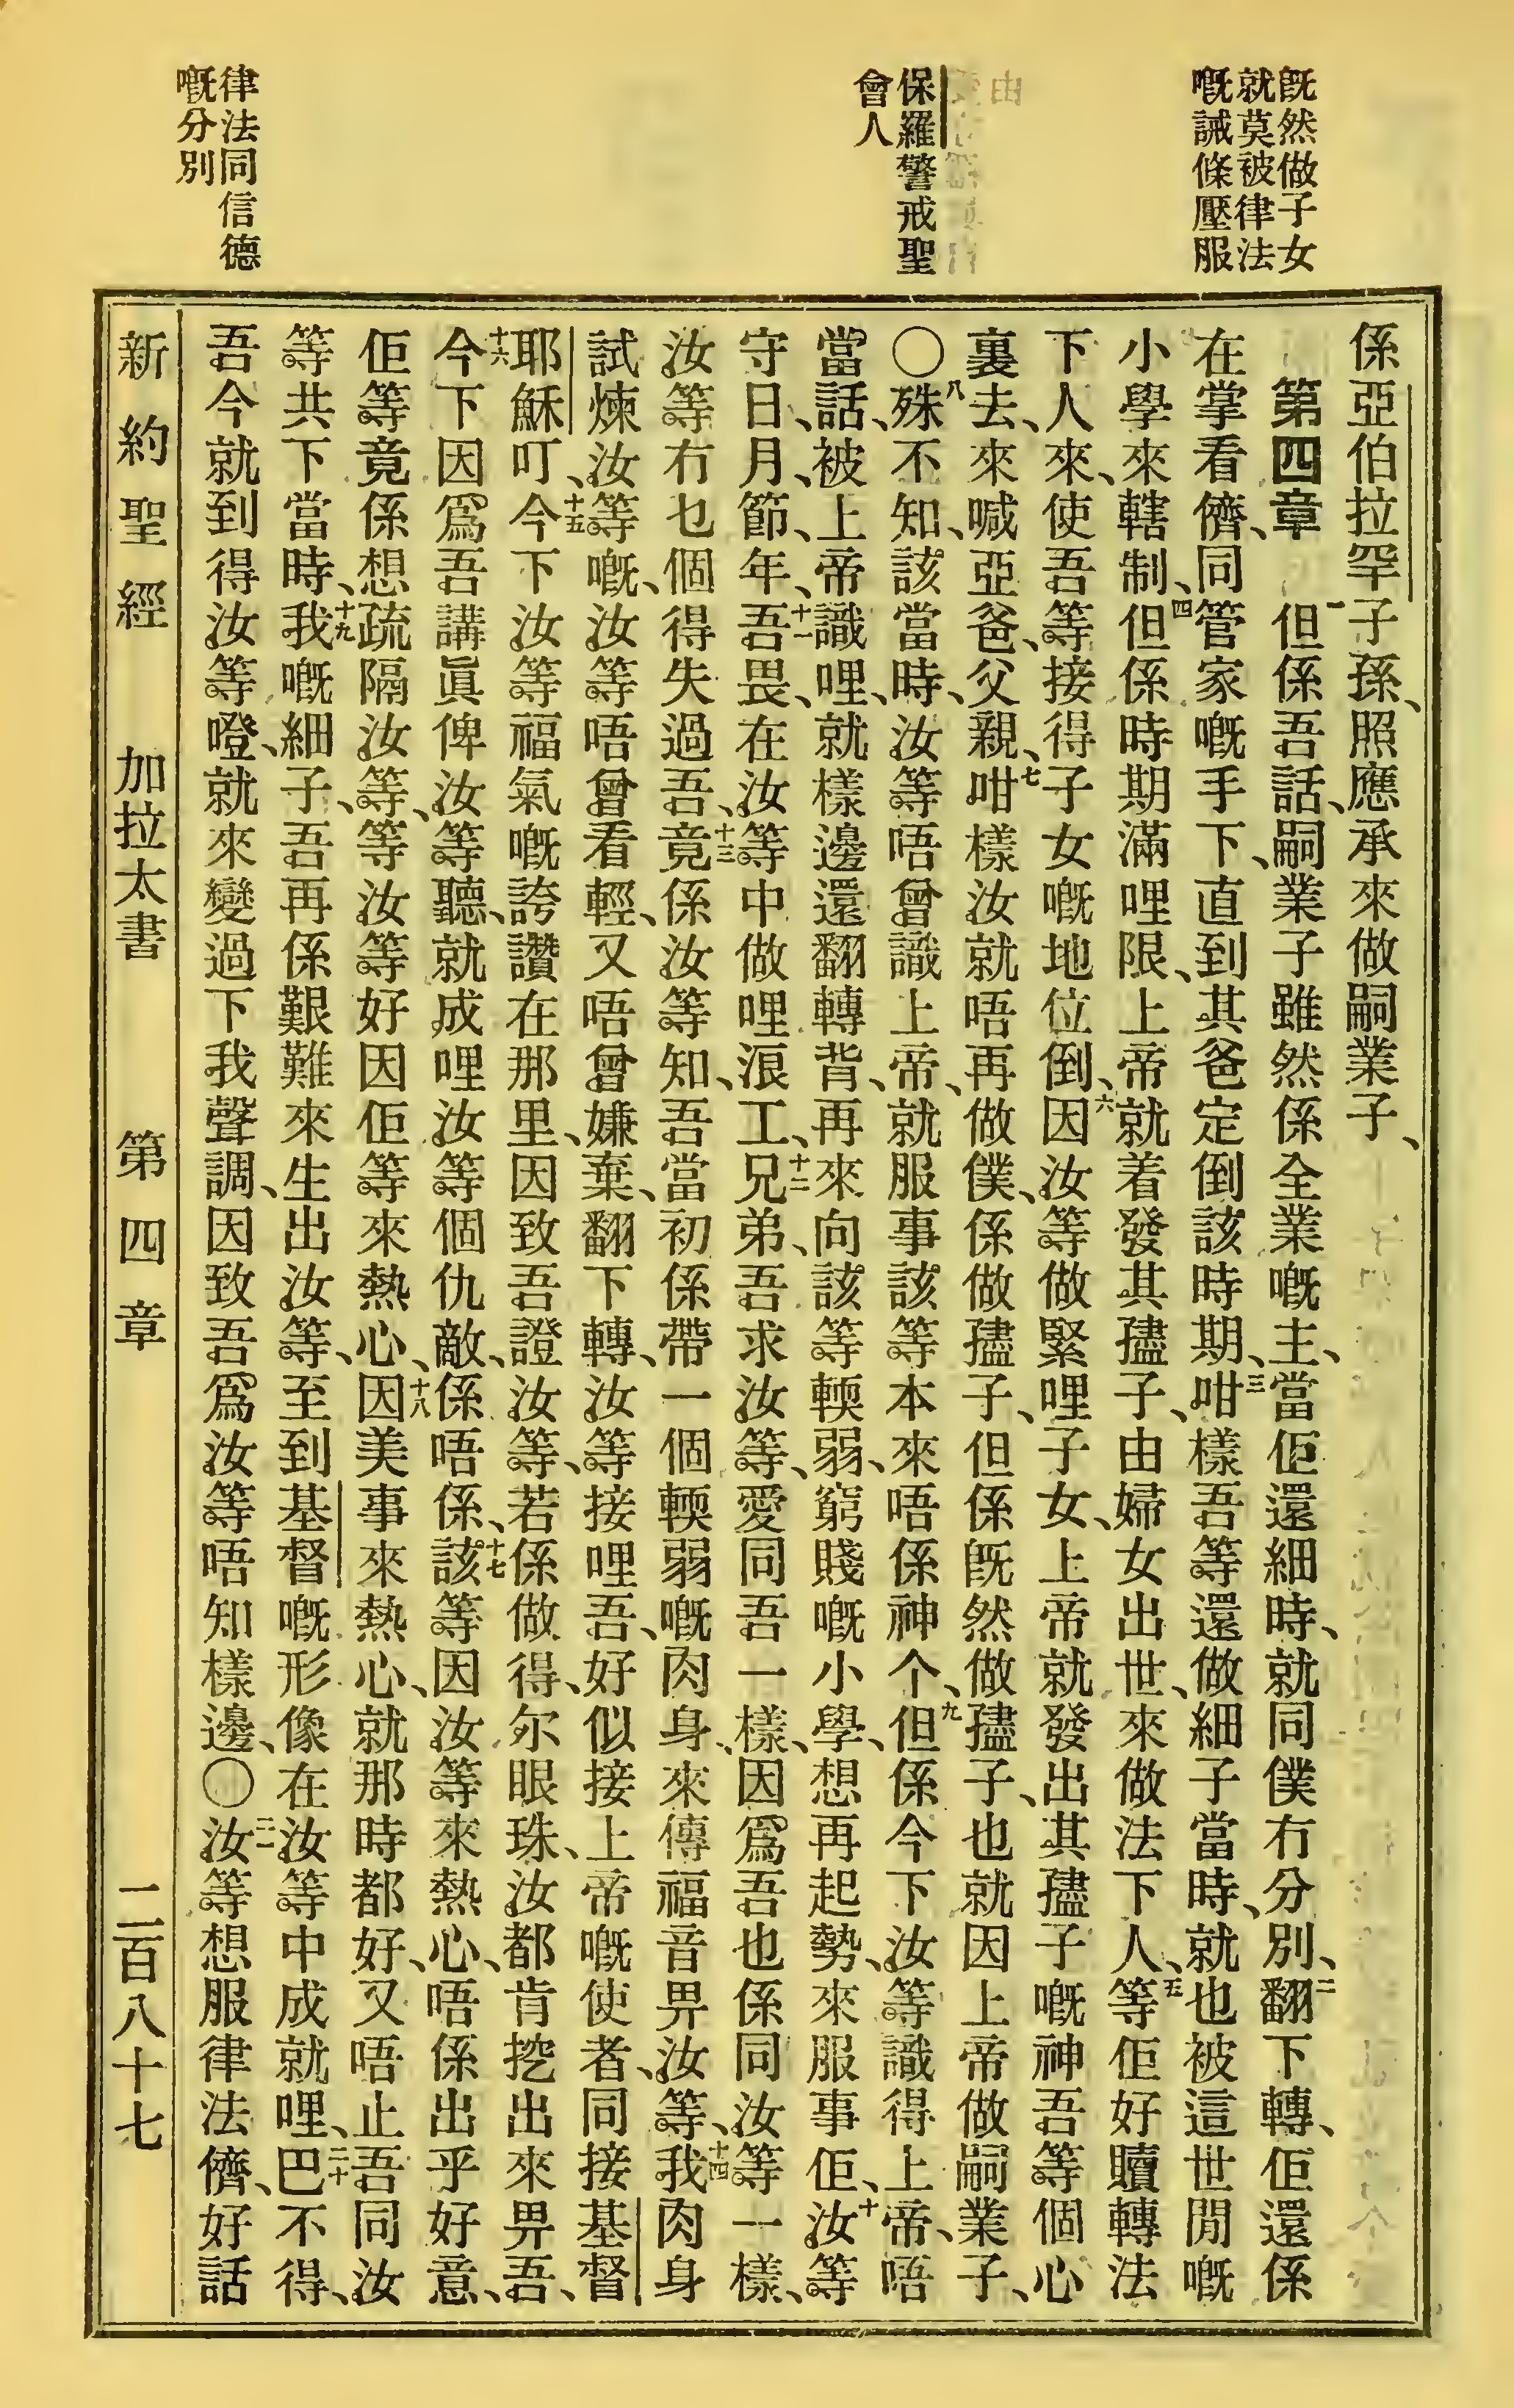 既然做子女
就莫被律法
嘅誡條壓服
保羅警戒聖
會人
律法同信德
嘅分別
係亞伯拉罕子孫、照應承來做嗣業子、
第四章　一但係吾話、嗣業子雖然係全業嘅主、當佢還細時、就同僕冇分別、二翻下轉、佢還係
在掌看儕、同管家嘅手下、直到其爸定倒該時期、三咁樣吾等還做細子當時、就也被這世閒嘅
小學來轄制、四但係時期滿哩限、上帝就着發其孻子、由婦女出世、來做法下人、五等佢好贖轉法
下人來、使吾等接得子女嘅地位倒、六因汝等做緊哩子女、上帝就發出其孻子嘅神吾等個心
裏去、來喊亞爸、父親、七咁樣汝就唔再做僕、係做孻子、但係既然做孻子、也就因上帝做嗣業子、
〇八殊不知、該當時、汝等唔曾識上帝、就服事該等本來唔係神个、九但係今下汝等識得上帝、唔
當話、被上帝識哩、就樣邊還翻轉背、再來向該等輭弱、窮賤嘅小學、想再起勢、來服事佢、十汝等
守日、月、節、年、十一吾畏、在汝等中做哩浪工、十二兄弟、吾求汝等、愛同吾一樣、因爲吾也係同汝等一樣、
汝等冇乜個得失過吾、十三竟係汝等知、吾當初係帶一個輭弱嘅肉身、來傳福音畀汝等、十四我肉身
試煉汝等嘅、汝等唔曾看輕、又唔曾嫌棄、翻下轉、汝等接哩吾、好似接上帝嘅使者、同接基督
耶穌叮、十五今下汝等福氣嘅誇讚在那里、因致吾證汝等、若係做得、尔眼珠、汝都肯挖出來畀吾、
十六今下因爲吾講眞俾汝等聽、就成哩汝等個仇敵、係唔係、十七該等因汝等來熱心、唔係出乎好意、
佢等竟係想疏隔汝等、等汝等好因佢等來熱心、十八因美事來熱心、就那時都好、又唔止吾同汝
等共下當時、十九我嘅細子、吾再係艱難來生出汝等、至到基督嘅形像在汝等中成就哩、二十巴不得、
吾今就到得汝等嶝、就來變過下我聲調、因致吾爲汝等唔知樣邊、〇二一汝等想服律法儕、好話
新約聖經　加拉太書　第四章　二百八十七